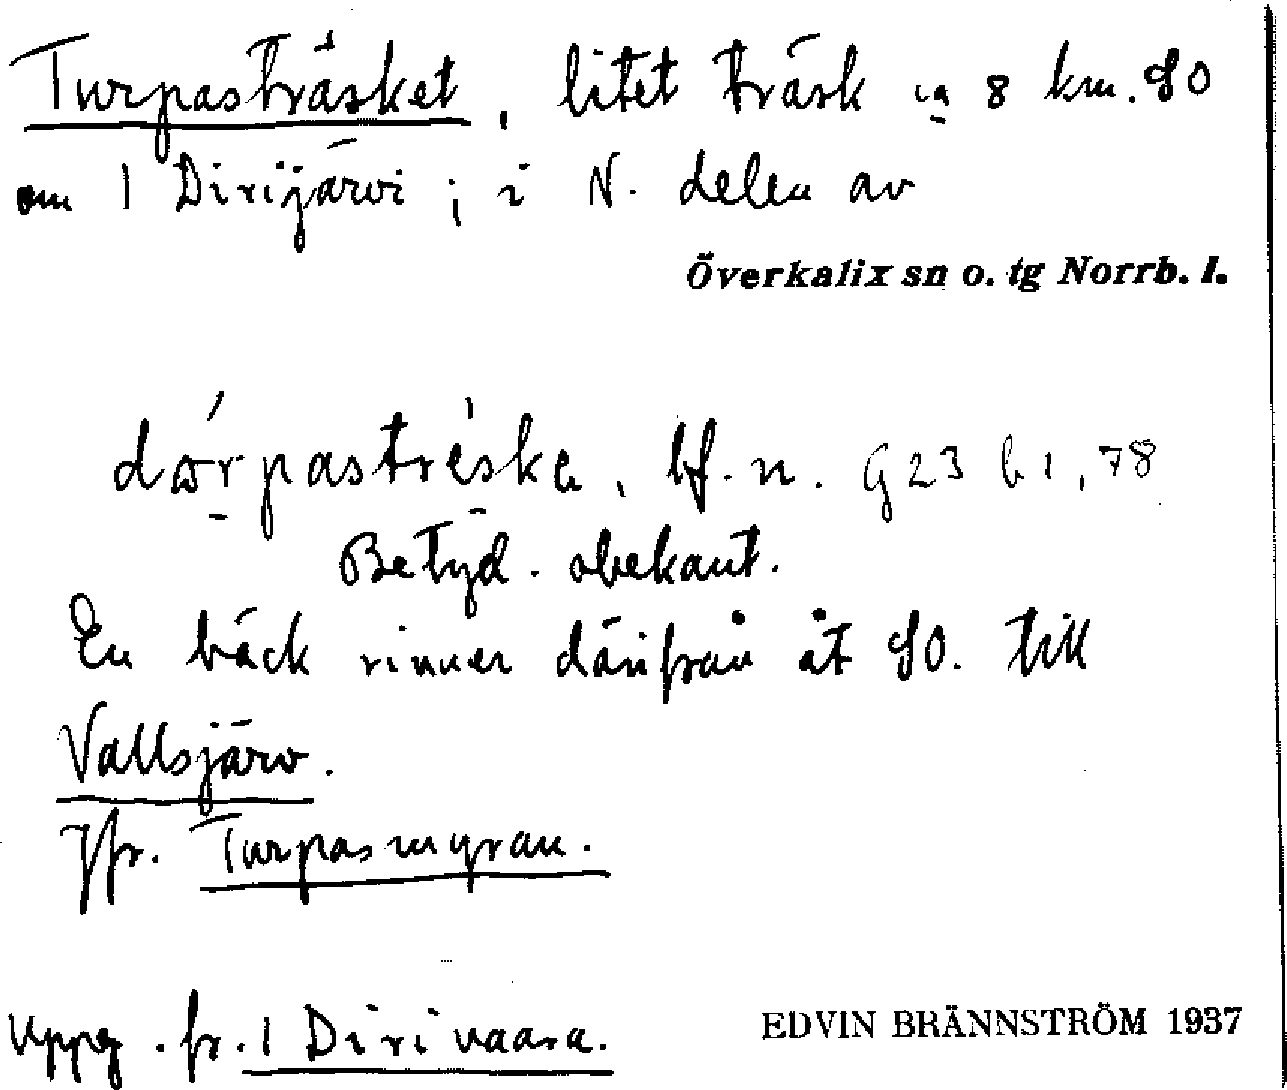 Turpasträsket, litet träsk ca 8 km. SO
om 1 Dirijärvi; i N. delen av
Överkalix sn o. tg Norrb. l.
bf. n. G23 b1, 78
Betyd. obekant.
En bäck rinner därifrån åt SO. till
Vallsjärv.
Jfr. Turpasmyran.
Uppg. fr. 1 Dirivaara.
EDVIN BRÄNNSTRÖM 1937